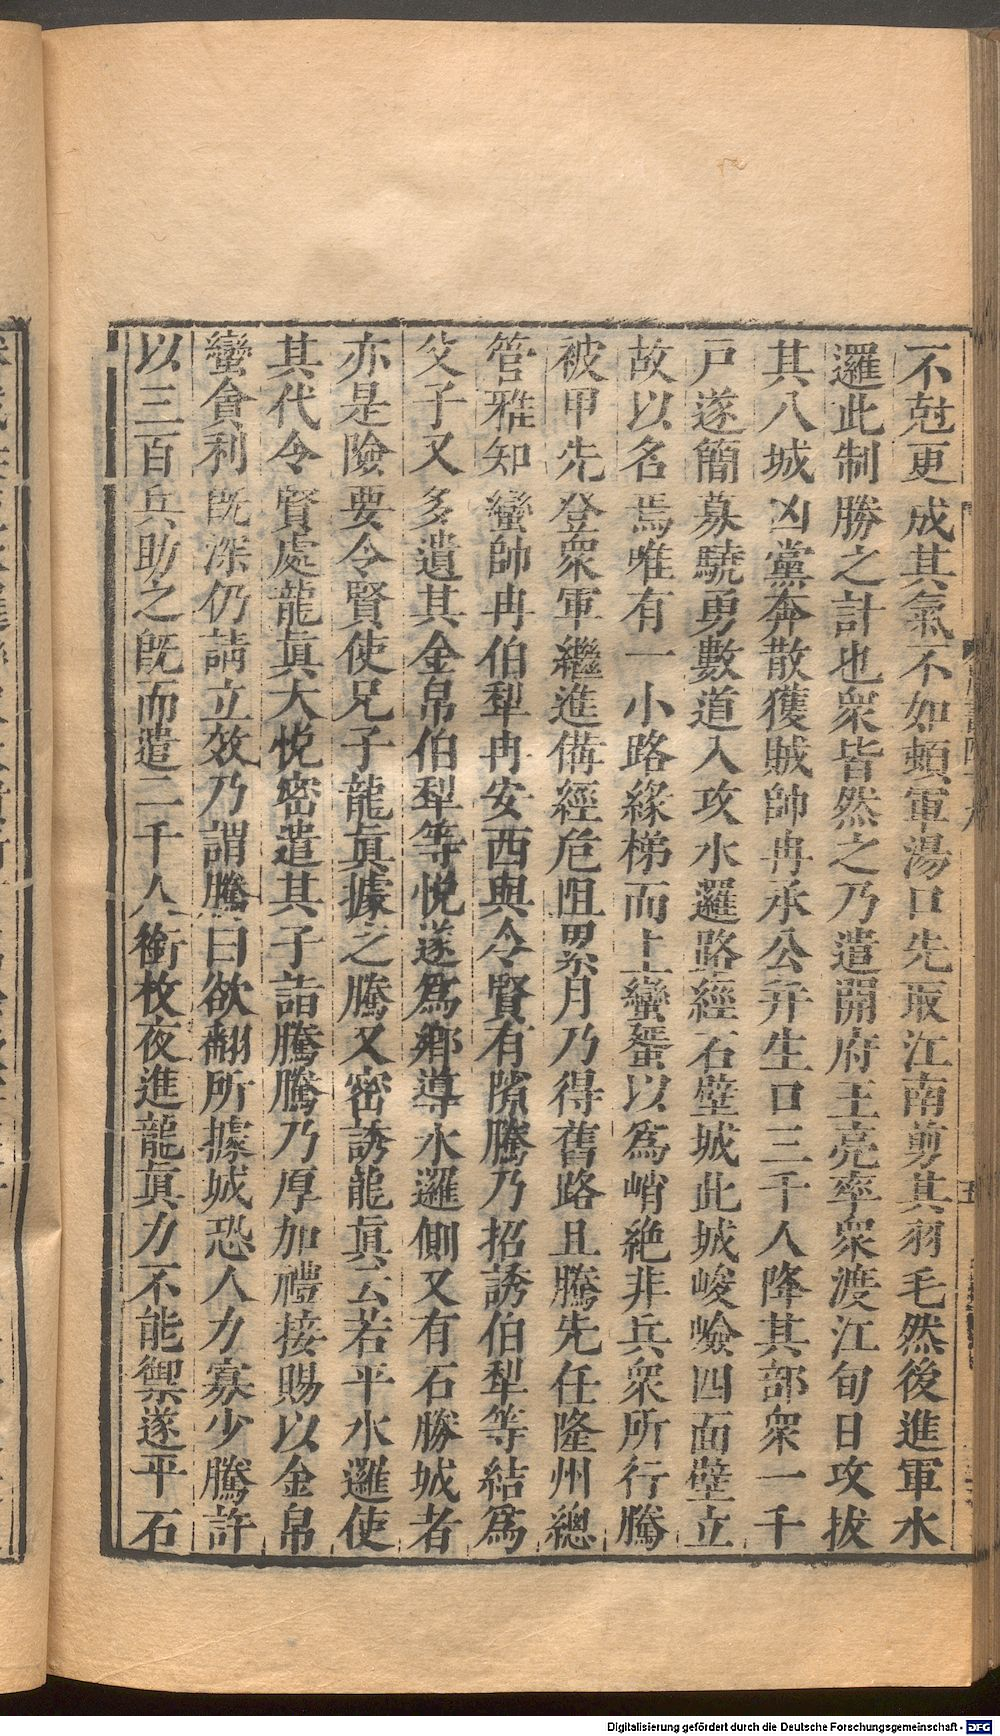 不尅更成其氣不如頓軍湯口先取江南剪其羽毛然後進軍水
邏此制勝之計也衆皆然之乃遣開府王亮率衆渡江旬日攻拔
其八城凶黨奔散獲賊帥冉承公并生口三千人降其部衆一千
戸遂簡募驍勇數道入攻水邏路經石壁城此城峻嶮四面壁立
故以名焉唯有一小路緣梯而上蠻蜑以爲峭絶非兵衆所行騰
被甲先登衆軍繼進備經危阻累月乃得舊路且騰先任隆州總
管雅知蠻帥冉伯犁冉安西與令賢有隙騰乃招誘伯犁等結爲
父子又多遺其金帛伯犁等悅遂爲鄉導水邏側又有石勝城者
亦是險要令賢使兄子龍眞據之騰又密誘龍眞云若平水邏使
其代令賢處龍眞大悅密遣其子詣騰騰乃厚加禮接賜以金帛
蠻貪利既深仍請立效乃謂騰曰欲翻所據城恐人力寡少騰許
以三百兵助之既而遣二千人銜枚夜進龍眞力不能禦遂平石
五
Digitalisierung gefördert durch die Deutsche Forschungsgemeinschaft - DFG